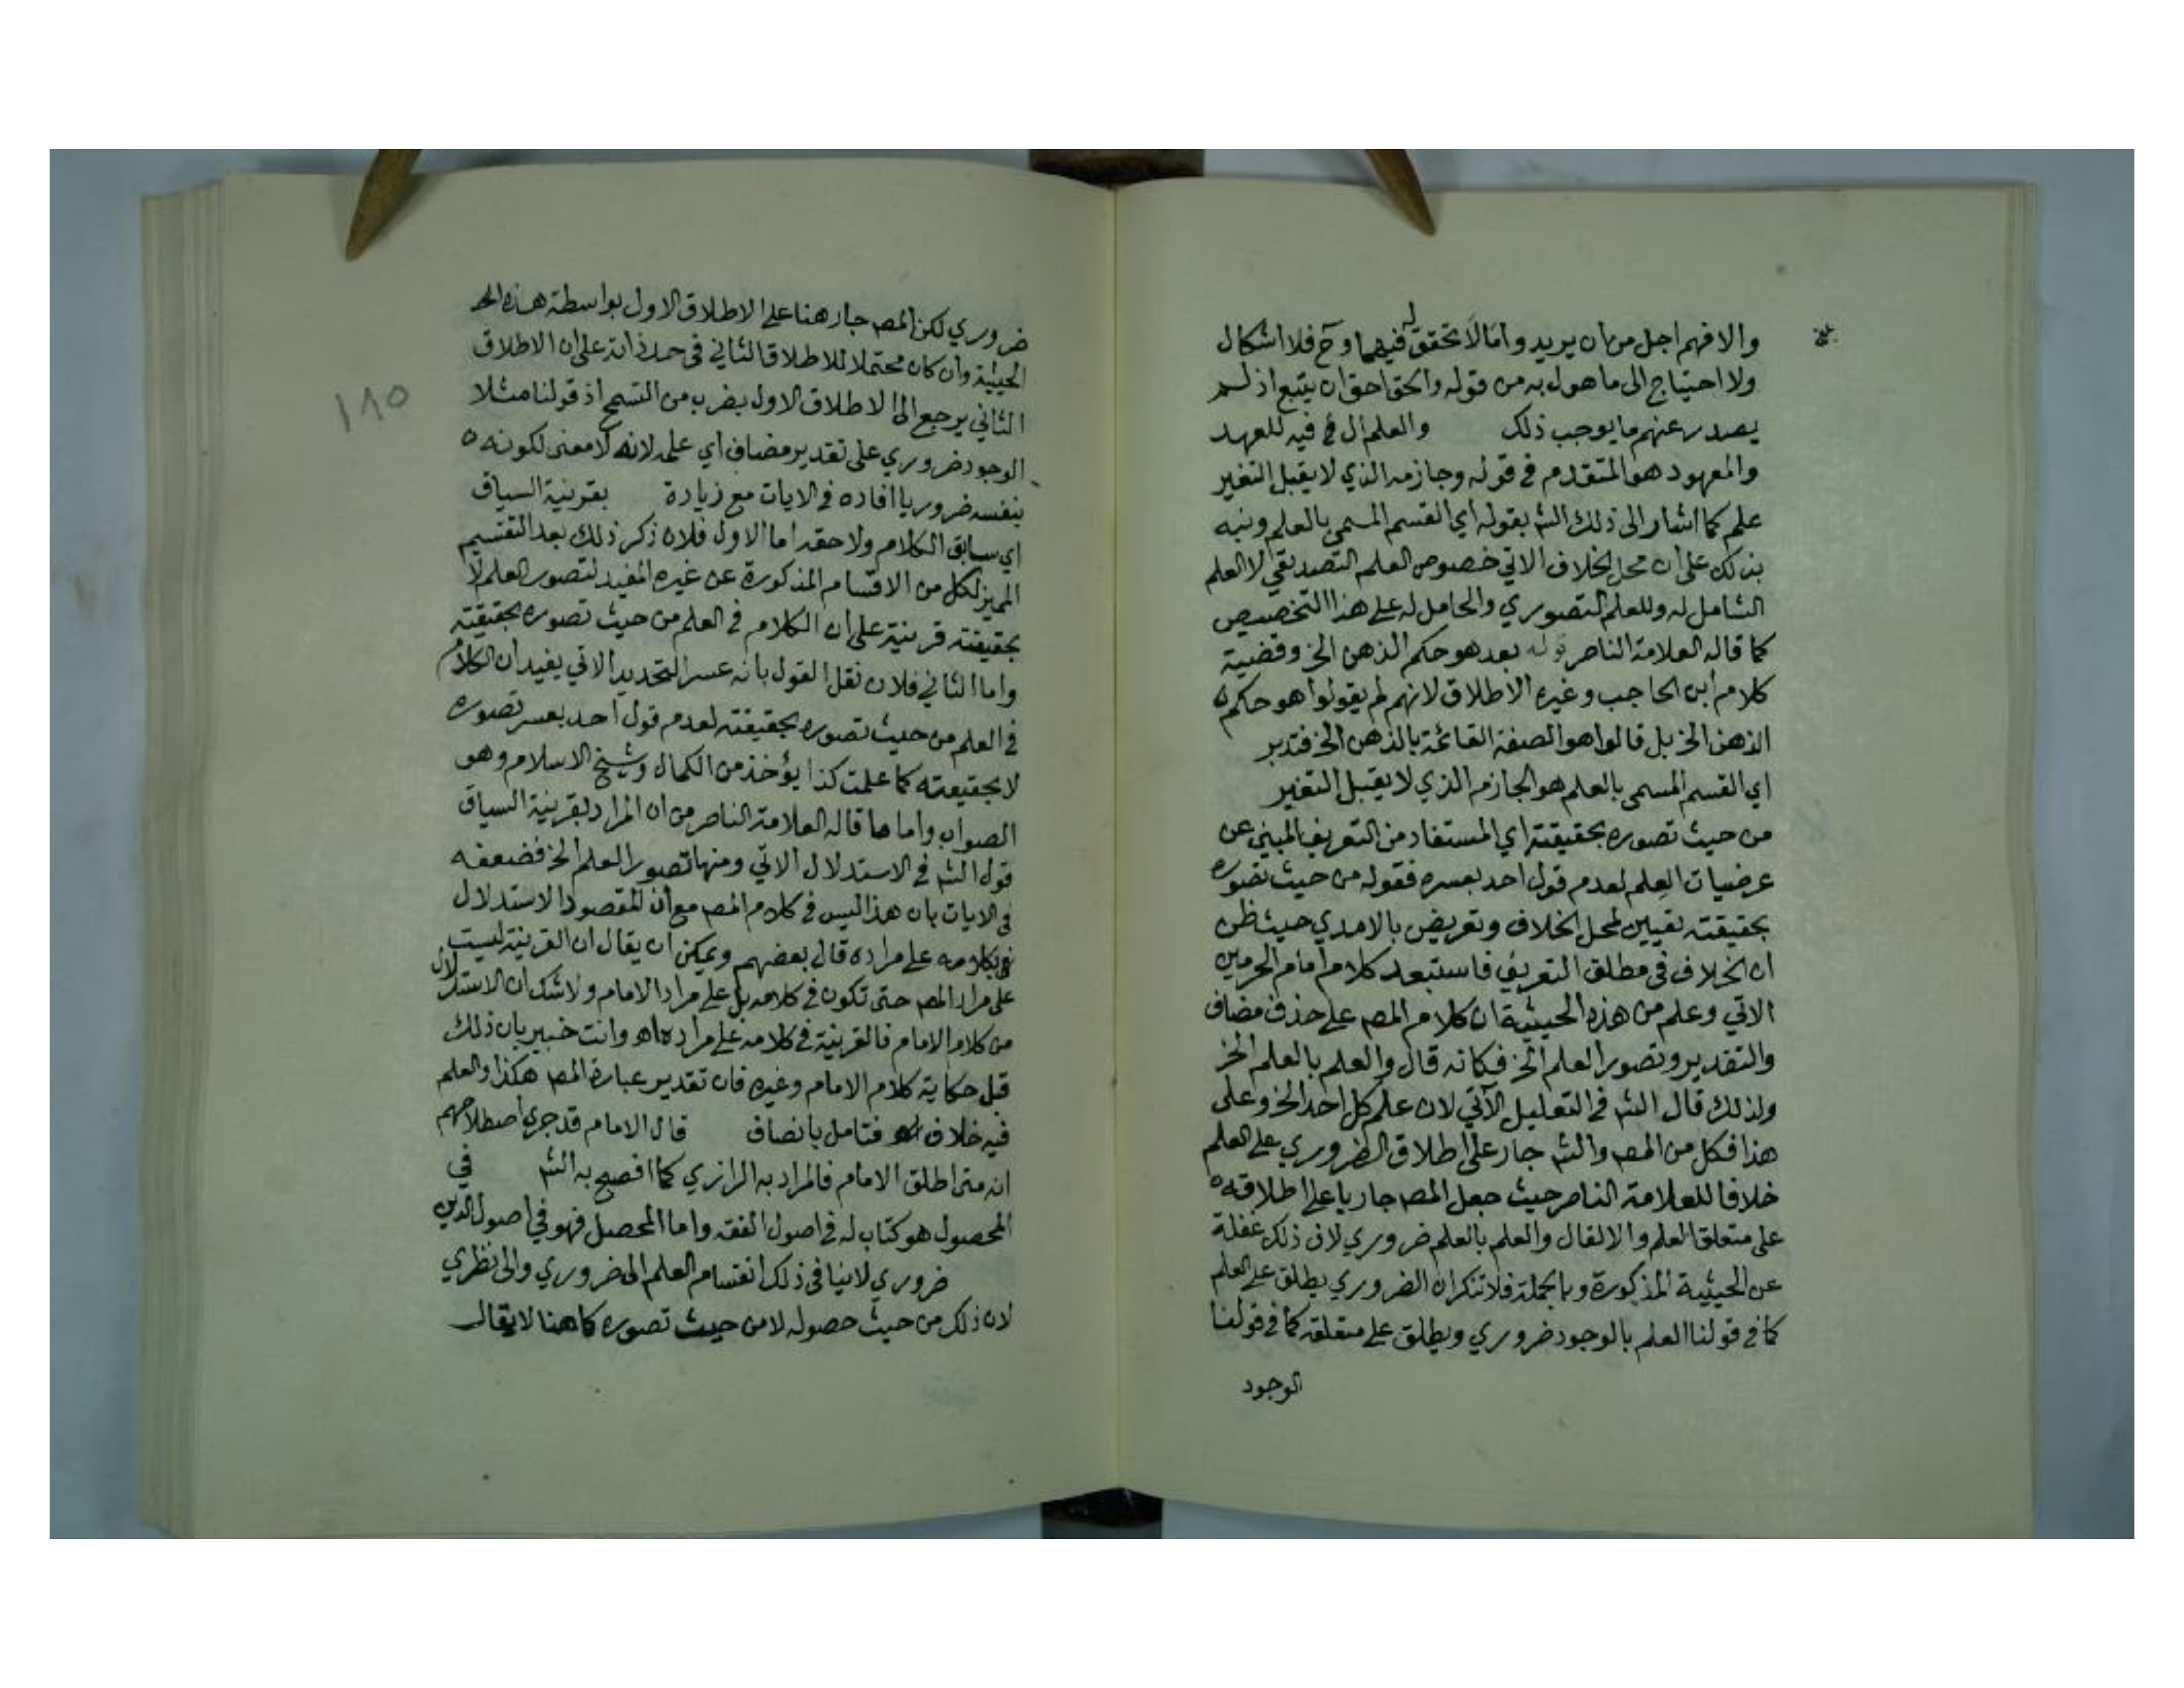 والا فهم اجل من ان يريد واما لا تحقق له فيهما وح فلا اشكال
ولا احتياج الى ما هول به من قوله والحق احق ان يتبع اذ لم
يصدر عنهم ما يوجب ذلك والعلم ال في فيه للعهد
والمعهود هو المتقدم في قوله وجازمه الذي لا يقبل التغير
علم كما اشار الى ذلك الش بقوله اي القسم المسمى بالعلم ونبه
بذلك على ان محل الخلاف الاتي خصوص العلم التصديقي لا العلم
الشامل له وللعلم التصوري والحامل له على هذا التخصيص
كما قاله العلامة الناصر قوله بعد هو حكم الذهن الخ وقضية
كلام ابن الحاجب وغيره الاطلاق لانهم لم يقولوا هو حكم
الذهن الخ بل قالوا هو الصفة القائمة بالذهن الخ فتدبر
اي القسم المسمى بالعلم هو الجازم الذي لا يقبل التغير
من حيث تصوره بحقيقته اي المستفاد من التعريف المبني عن
عرضيات العلم لعدم قول احد بعسره فقوله من حيث تصوره
بحقيقته تعيين لمحل الخلاف وتعريض بالامدي حيث ظن
ان الخلاف في مطلق التعريف فاستبعد كلام امام الحرمين
الاتي وعلم من هذه الحيثية ان كلام المص على حذف مضاف
والتقدير وتصور العلم الخ فكانه قال والعلم بالعلم الخ
ولذلك قال الش في التعليل الآتي لان علم كل احد الخ وعلى
هذا فكل من المص والش جار على اطلاق الضروري على العلم
خلافا للعلامة الناصر حيث جعل المص جاريا على اطلاقه
على متعلق العلم والا لقال والعلم بالعلم ضروري لان ذلك غفلة
عن الحيثية المذكورة وبالجملة فلا تنكر ان الضروري يطلق على العلم
كما في قولنا العلم بالوجود ضروري ويطلق على متعلقه كما في قولنا
الوجود
١٨٥
ضروري لكن المص جار هنا على الاطلاق الاول بواسطة هذه
الحيثية وان كان محتملا للاطلاق الثاني في حد ذاته على ان الاطلاق
الثاني يرجع الى الاطلاق الاول بضرب من التسمح اذ قولنا مثلا
الوجود ضروري على تقدير مضاف اي علم لانه لا معنى لكونه
بنفسه ضروريا افاده في الايات مع زيادة بقرينة السياق
اي سابق الكلام ولاحقه اما الاول فلان ذكر ذلك بعد التقسيم
المميز لكل من الاقسام المذكورة عن غيره المفيد لتصور العلم لا
بحقيقته قرينة على ان الكلام في العلم من حيث تصوره بحقيقته
واما الثاني فلان نقل القول بانه عسر التحديد الاتي يفيد ان الكلام
في العلم من حيث تصوره بحقيقته لعدم قول احد بعسر تصوره
لا بحقيقته كما علمت كذا يؤخذ من الكمال وشيخ الاسلام وهو
الصواب واما ما قاله العلامة الناصر من ان المراد بقرينة السياق
قول الش في الاستدلال الاتي ومنها تصور العلم الخ فضعفه
في الايات بان هذا ليس في كلام المص مع ان المقصود الاستدلال
بكلامه على مراده قال بعضهم ويمكن ان يقال ان القرينة ليست
على مراد المص حتى تكون في كلامه بل على مراد الامام ولا شك ان الاستدلال
من كلام الامام فالقرينة في كلامه على مراده اه وانت خبير بان ذلك
قبل حكاية كلام الامام وغيره فان تقدير عبارة المص هكذا والعلم
فيه خلاف فتامل بانصاف قال الامام قد جرى اصطلاحهم
انه متى اطلق الامام فالمراد به الرازي كما افصح به الش في
المحصول هو كتاب له في اصول الفقه واما المحصل فهو في اصول الدين
ضروري لا ينافي ذلك انقسام العلم الى ضروري والى نظري
لان ذلك من حيث حصوله لا من حيث تصوره كما هنا لا يقال